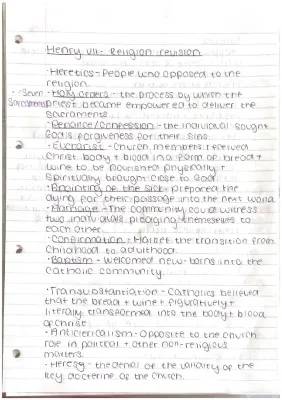 Henry VII - Religion revision
·Heretics - People who opposed to the
religion.
-Seven
Sacraments
·Holy orders - the process by which the
priest became empowered to deliver the
sacraments
·Penance/Confession - the individual sought
God's forgiveness for their sins.
·Eucharist - Church members received
Christ body + blood in a form of bread +
wine to be nourished physically +
spiritually brought close to God
·Anointing of the sick - prepared the
dying for their passage into the next world
·Marriage - The community could witness
two individuals pledging themeselves to
each other.
·Confirmation - Marked the transition from
childhood to adulthood.
·Baptism - welcomed new-borns into the
catholic community.
·Transubstantiation - Catholics believed
that the bread + wine + figuratively +
literally transformed into the body + blood
of christ
·Anticlericalism - opposite to the church
role in political + other non-religious
matters.
·Heresy - the denial of the validity of the
key doctrine of the church.